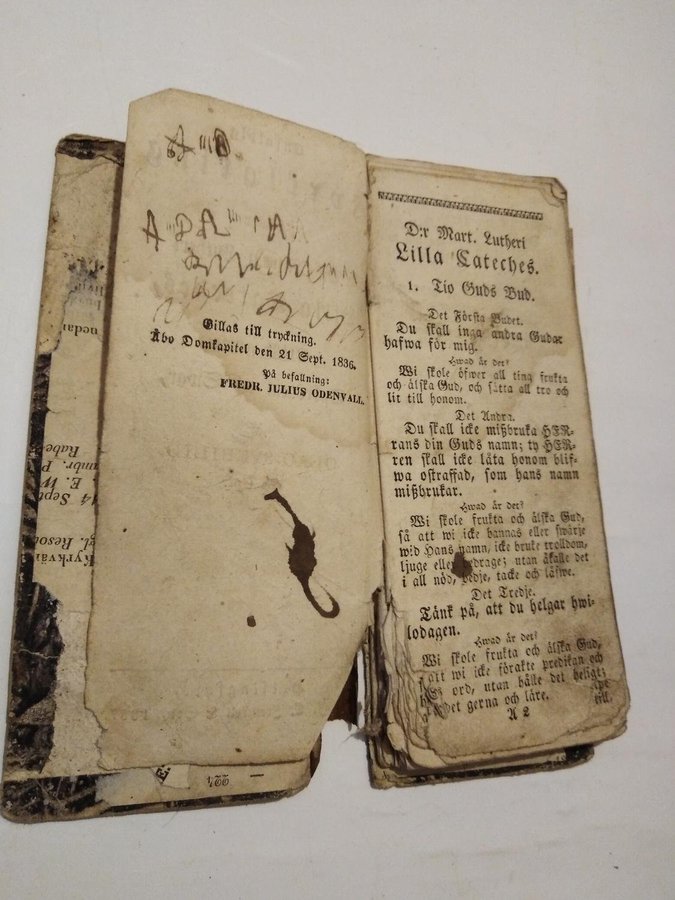 Gillas till tryckning.
Åbo Domkapitel den 21 Sept. 1836.
På befallning:
FREDR. JULIUS ODENVALL.
D:r Mart. Lutheri
Lilla Cateches.
1. Tio Guds Bud.
Det Första Budet.
Du skall inga andra Gudar
hafwa för mig.
Hwad är det?
Wi skole öfwer all ting frukta
och älska Gud, och sätta all tro och
lit till honom.
Det Andra.
Du skall icke mißbruka HER-
rans din Guds namn; ty HER-
ren skall icke låta honom blif-
wa ostraffad, som hans namn
mißbrukar.
Hwad är det?
Wi skole frukta och älska Gud,
så att wi icke bannas eller swärje
wid Hans namn, icke bruke trolldom,
ljuge eller bedrage; utan åkalle det
i all nöd, bedje, tacke och låfwe.
Det Tredje.
Tänk på, att du helgar hwi-
lodagen.
Hwad är det?
Wi skole frukta och älska Gud,
att wi icke förakte predikan och
ord, utan hålle det heligt;
det gerna och läre.
A 2
nedan
Rabe
E. W
14 Sept
gl. Reso
Kyrkvär